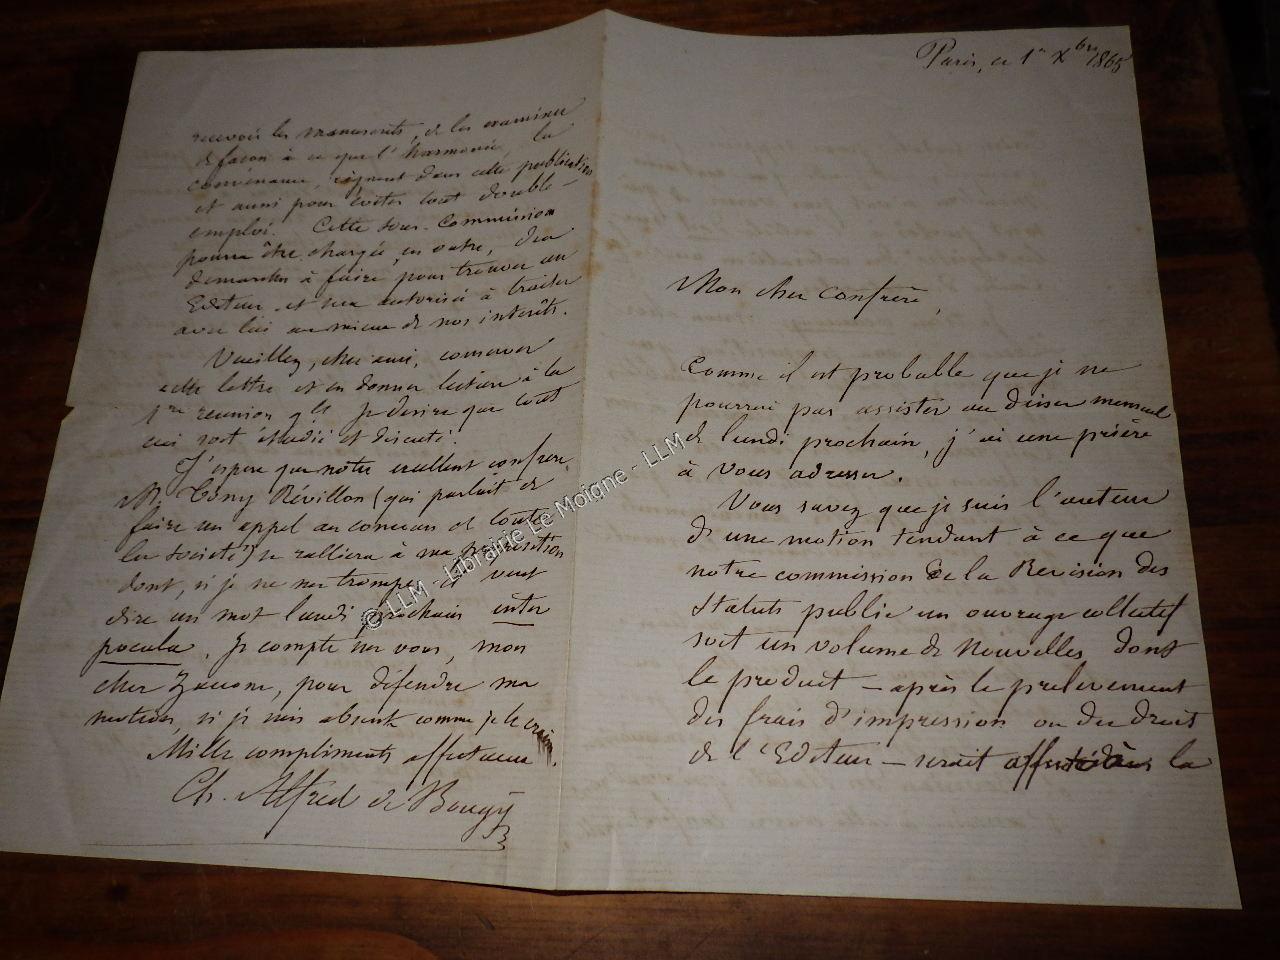 Paris, ce 1er Xbre 1865
Mon cher confrère,
Comme il est probable que je ne
pourrai pas assister au diner mensuel
de lundi prochain, j'ai une prière
à vous adresser.
Vous savez que je suis l'auteur
d'une motion tendant à ce que
notre commission de la Revision des
Statuts publie un ouvrage collectif
soit un volume de Nouvelles dont
le produit — après le prelevement
des frais d'impression ou du droit
de l'Editeur — serait la
recevoir les manuscrits, de les examiner
de façon à ce que l'harmonie, la
convenance, règnent dans cette publication
et aussi pour éviter tout double-
emploi. Cette sous-Commission
pourra être chargée, en outre, des
demarches à faire pour trouver un
Editeur et sera autorisée à traiter
avec lui au mieux de nos intérêts.
Veuillez, cher ami, conserver
cette lettre et en donner lecture à la
1re reunion Je desire que tout
soit étudié et discuté.
J'espère que notre excellent confrère,
M. Tony Révillon (qui parlait de
faire un appel au concours de toute
la Société) se ralliera à ma proposition
dont, si je ne me trompe, il veut
dire un mot lundi prochain inter
pocula. Je compte sur vous, mon
cher Zaccone, pour défendre ma
motion, si je suis absent comme je le crains.
Mille compliments affectueux.
Ch. Alfred de Bougy
© LLM - Librairie Le Moigne - LLM